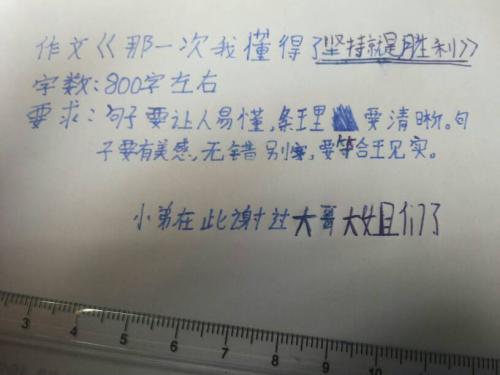 作文《那一次我懂得了坚持就是胜利》
字数:800字左右
要求:句子要让人易懂,条理里要清晰。句
子要有美感,无错别字,要符合现实。
小弟在此谢过大哥大姐们了
3 4 5 6 7 8 9 10